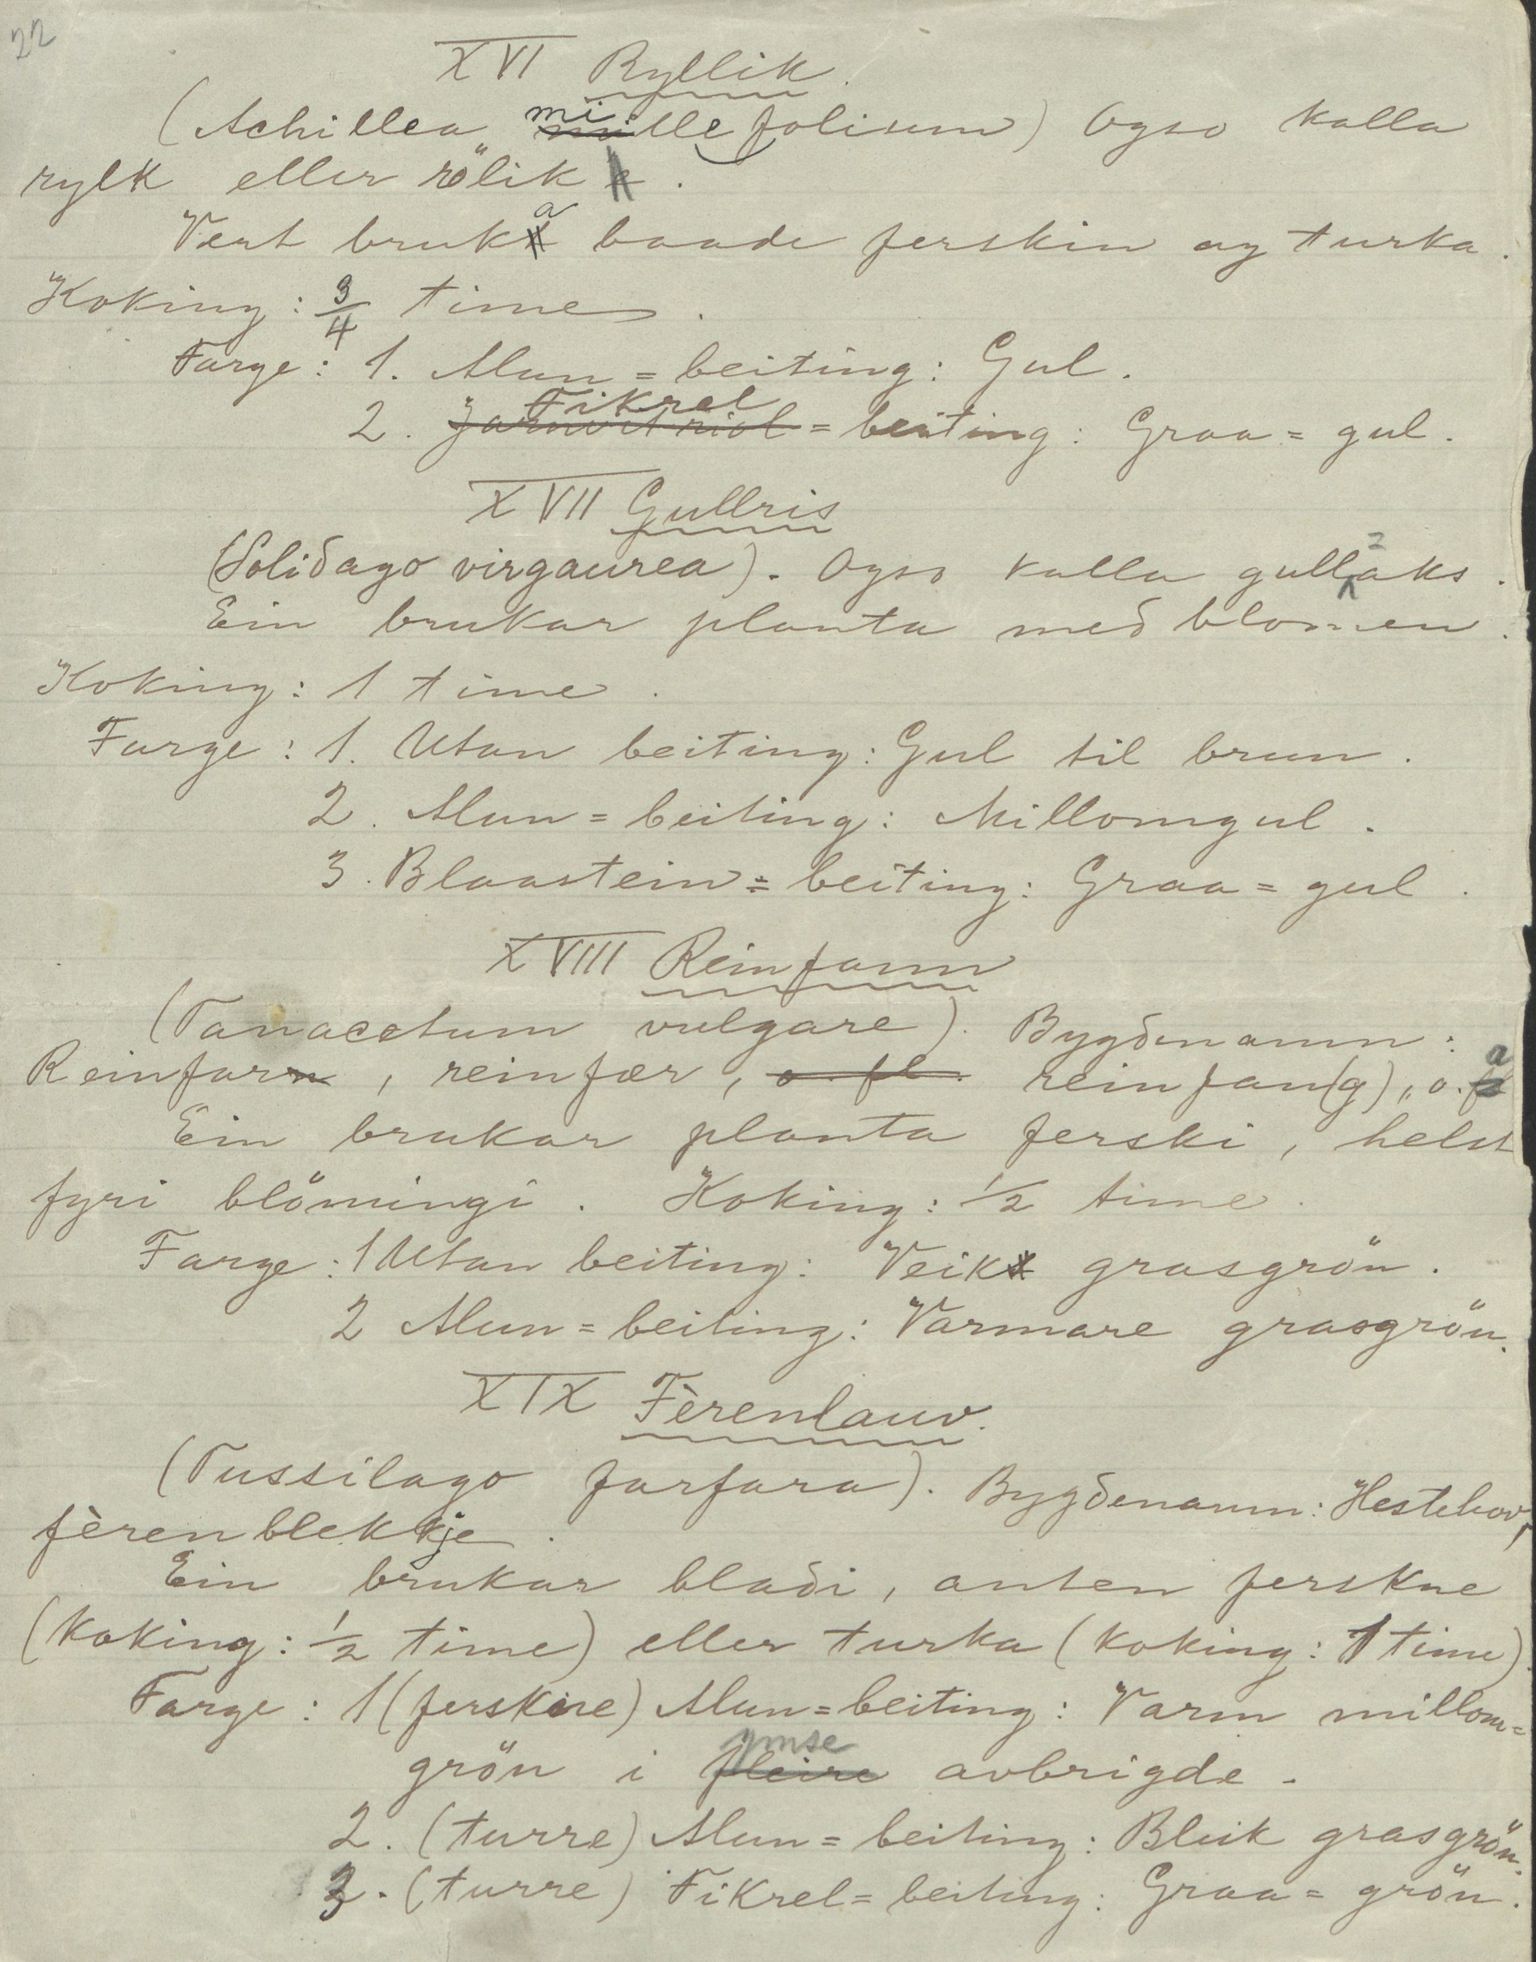 22
XVI Ryllik.
(Achillea millefolium) Ogso kalla
rylk eller rölik.
Vert bruka baade ferskin og turka.
Koking: 3/4 time.
Farge: 1. Alun=beiting: Gul.
2. Fikrel=beiting: Graa=gul.
XVII Gullris
(Soliðago virgaurea). Ogso kalla gullaks.
Ein brukar planta með blomen.
Koking: 1 time.
Farge: 1. Utan beiting: Gul til brun.
2. Alun=beiting: Millomgul.
3. Blaastein=beiting: Graa=gul.
XVIII Reinfann
(Tanacetum vulgare). Bygðenamn:
Reinfar, reinfær, reinfan(g), o.a
Ein brukar planta ferski, helst
fyri blömingi. Koking: 1/2 time.
Farge: 1 Utan beiting: Veik grasgrön.
2 Alun=beiting: Varmare grasgrön.
XIX Fèrenlauv.
(Tussilago farfara). Bygðenamn: Hestehov,
fèrenblekkje.
Ein brukar blaði, anten ferskne
(koking: 1/2 time) eller turka (koking: 1 time).
Farge: 1 (ferskne) Alun=beiting: Varm millom=
grön i ymse avbrigde.
2. (turre) Alun=beiting: Bleik grasgrön.
3. (turre) Fikrel=beiting: Graa=grön.